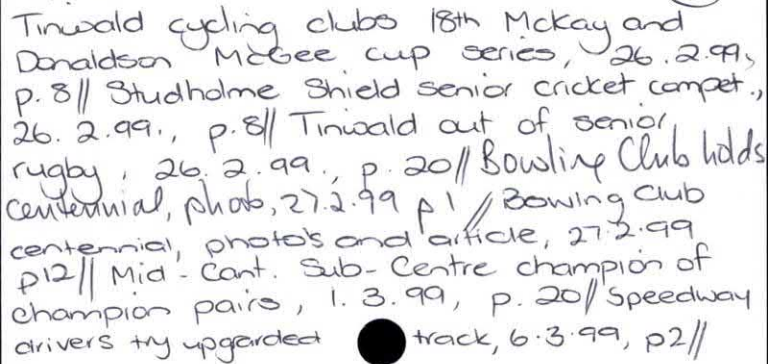 Tinwald cycling clubs 18th McKay and
Donaldson McGee cup series, 26.2.99,
p.8// Studholme Shield senior cricket compet.,
26. 2.99., p.8// Tinwald out of senior
rugby, 26.2.99., p.20// Bowling Club holds
centennial, photo, 27.2.99 p1 // Bowing Club
centennial, photo's and article, 27.2.99
p12// Mid-Cant. Sub-Centre champion of
champion pairs, 1.3.99, p.20// Speedway
drivers try upgarded track, 6.3.99, p2//